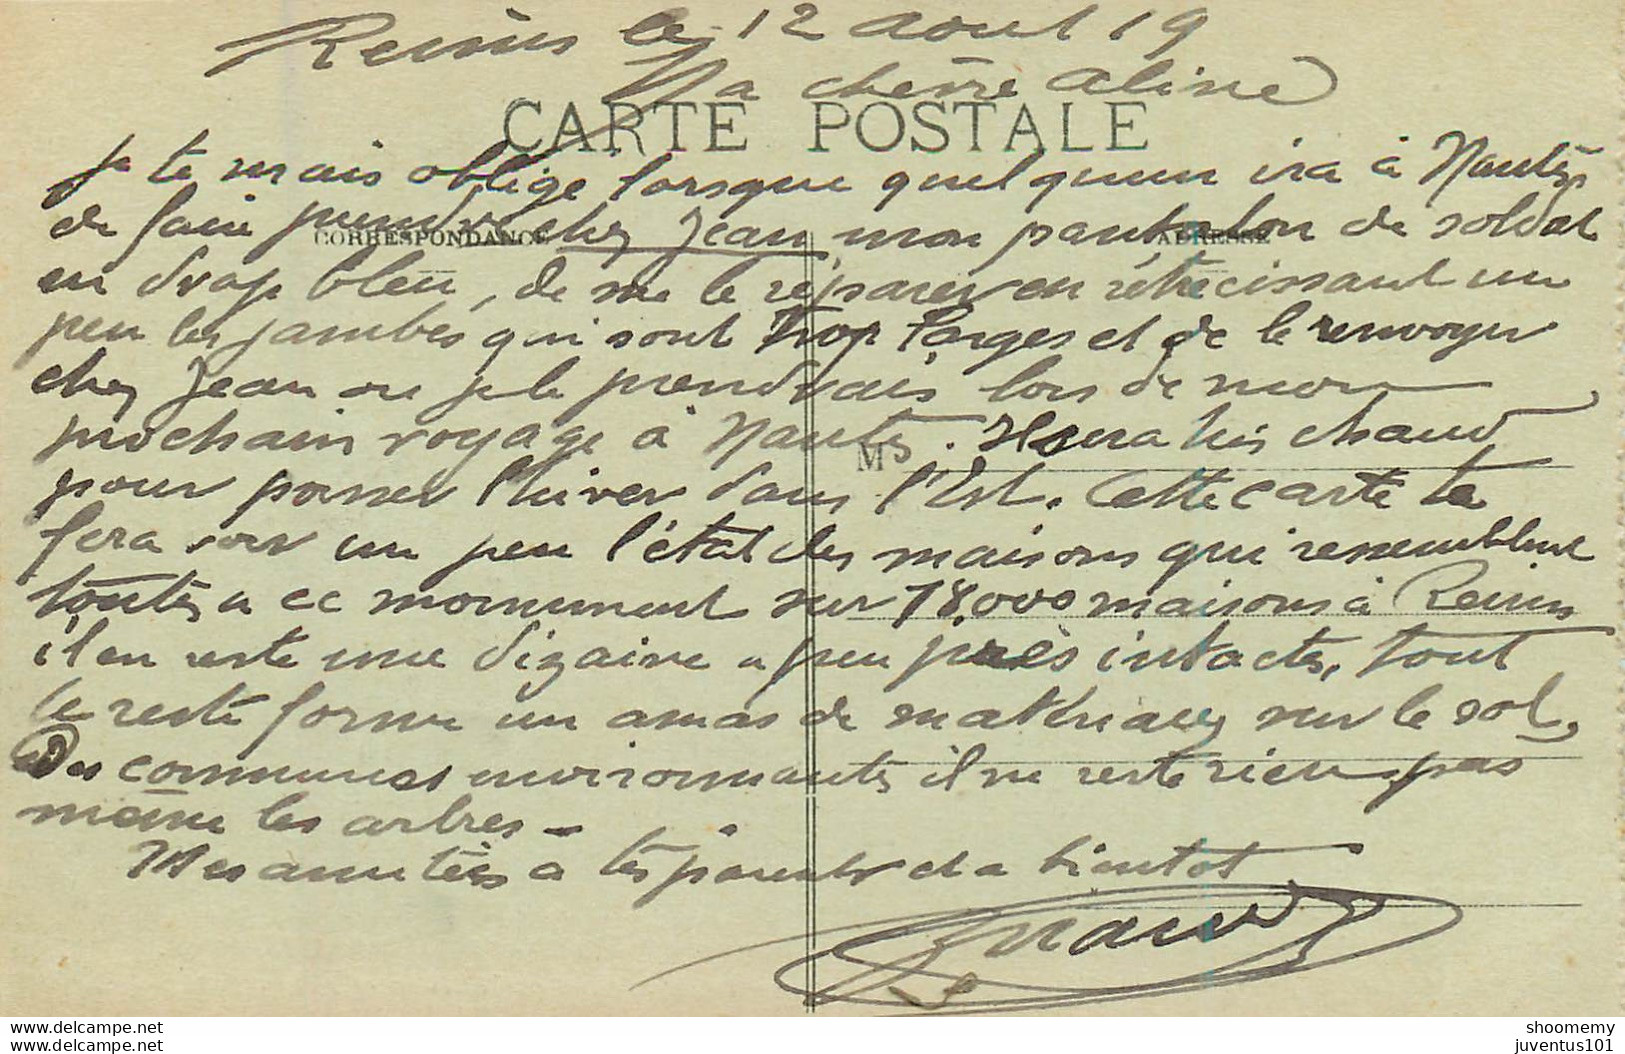 Reims le 12 aout 19
Ma chère Aline
CARTE POSTALE
je te serais obligé lorsque quelqu'un ira à Nantes
de faire prendre chez Jean mon pantalon de soldat
CORRESPONDANCE
ADRESSE
en drap bleu, de me le réparer en rétrécissant un
peu les jambes qui sont trop larges et de le renvoyer
chez Jean ou je le prendrais lors de mon
prochain voyage à Nantes. Il sera très chaud
M
pour passer l'hiver dans l'Est. Cette carte te
fera voir un peu l'état des maisons qui ressemblent
toutes a ce monument sur 18.000 maisons à Reims
il en reste une dizaine a peu près intactes, tout
le reste forme un amas de matériaux sur le sol,
Des communes environnantes il ne reste rien pas
même les arbres -
Mes amitiés à tes parents et a bientot
shoomemy
juventus101
juventus101
juventus101